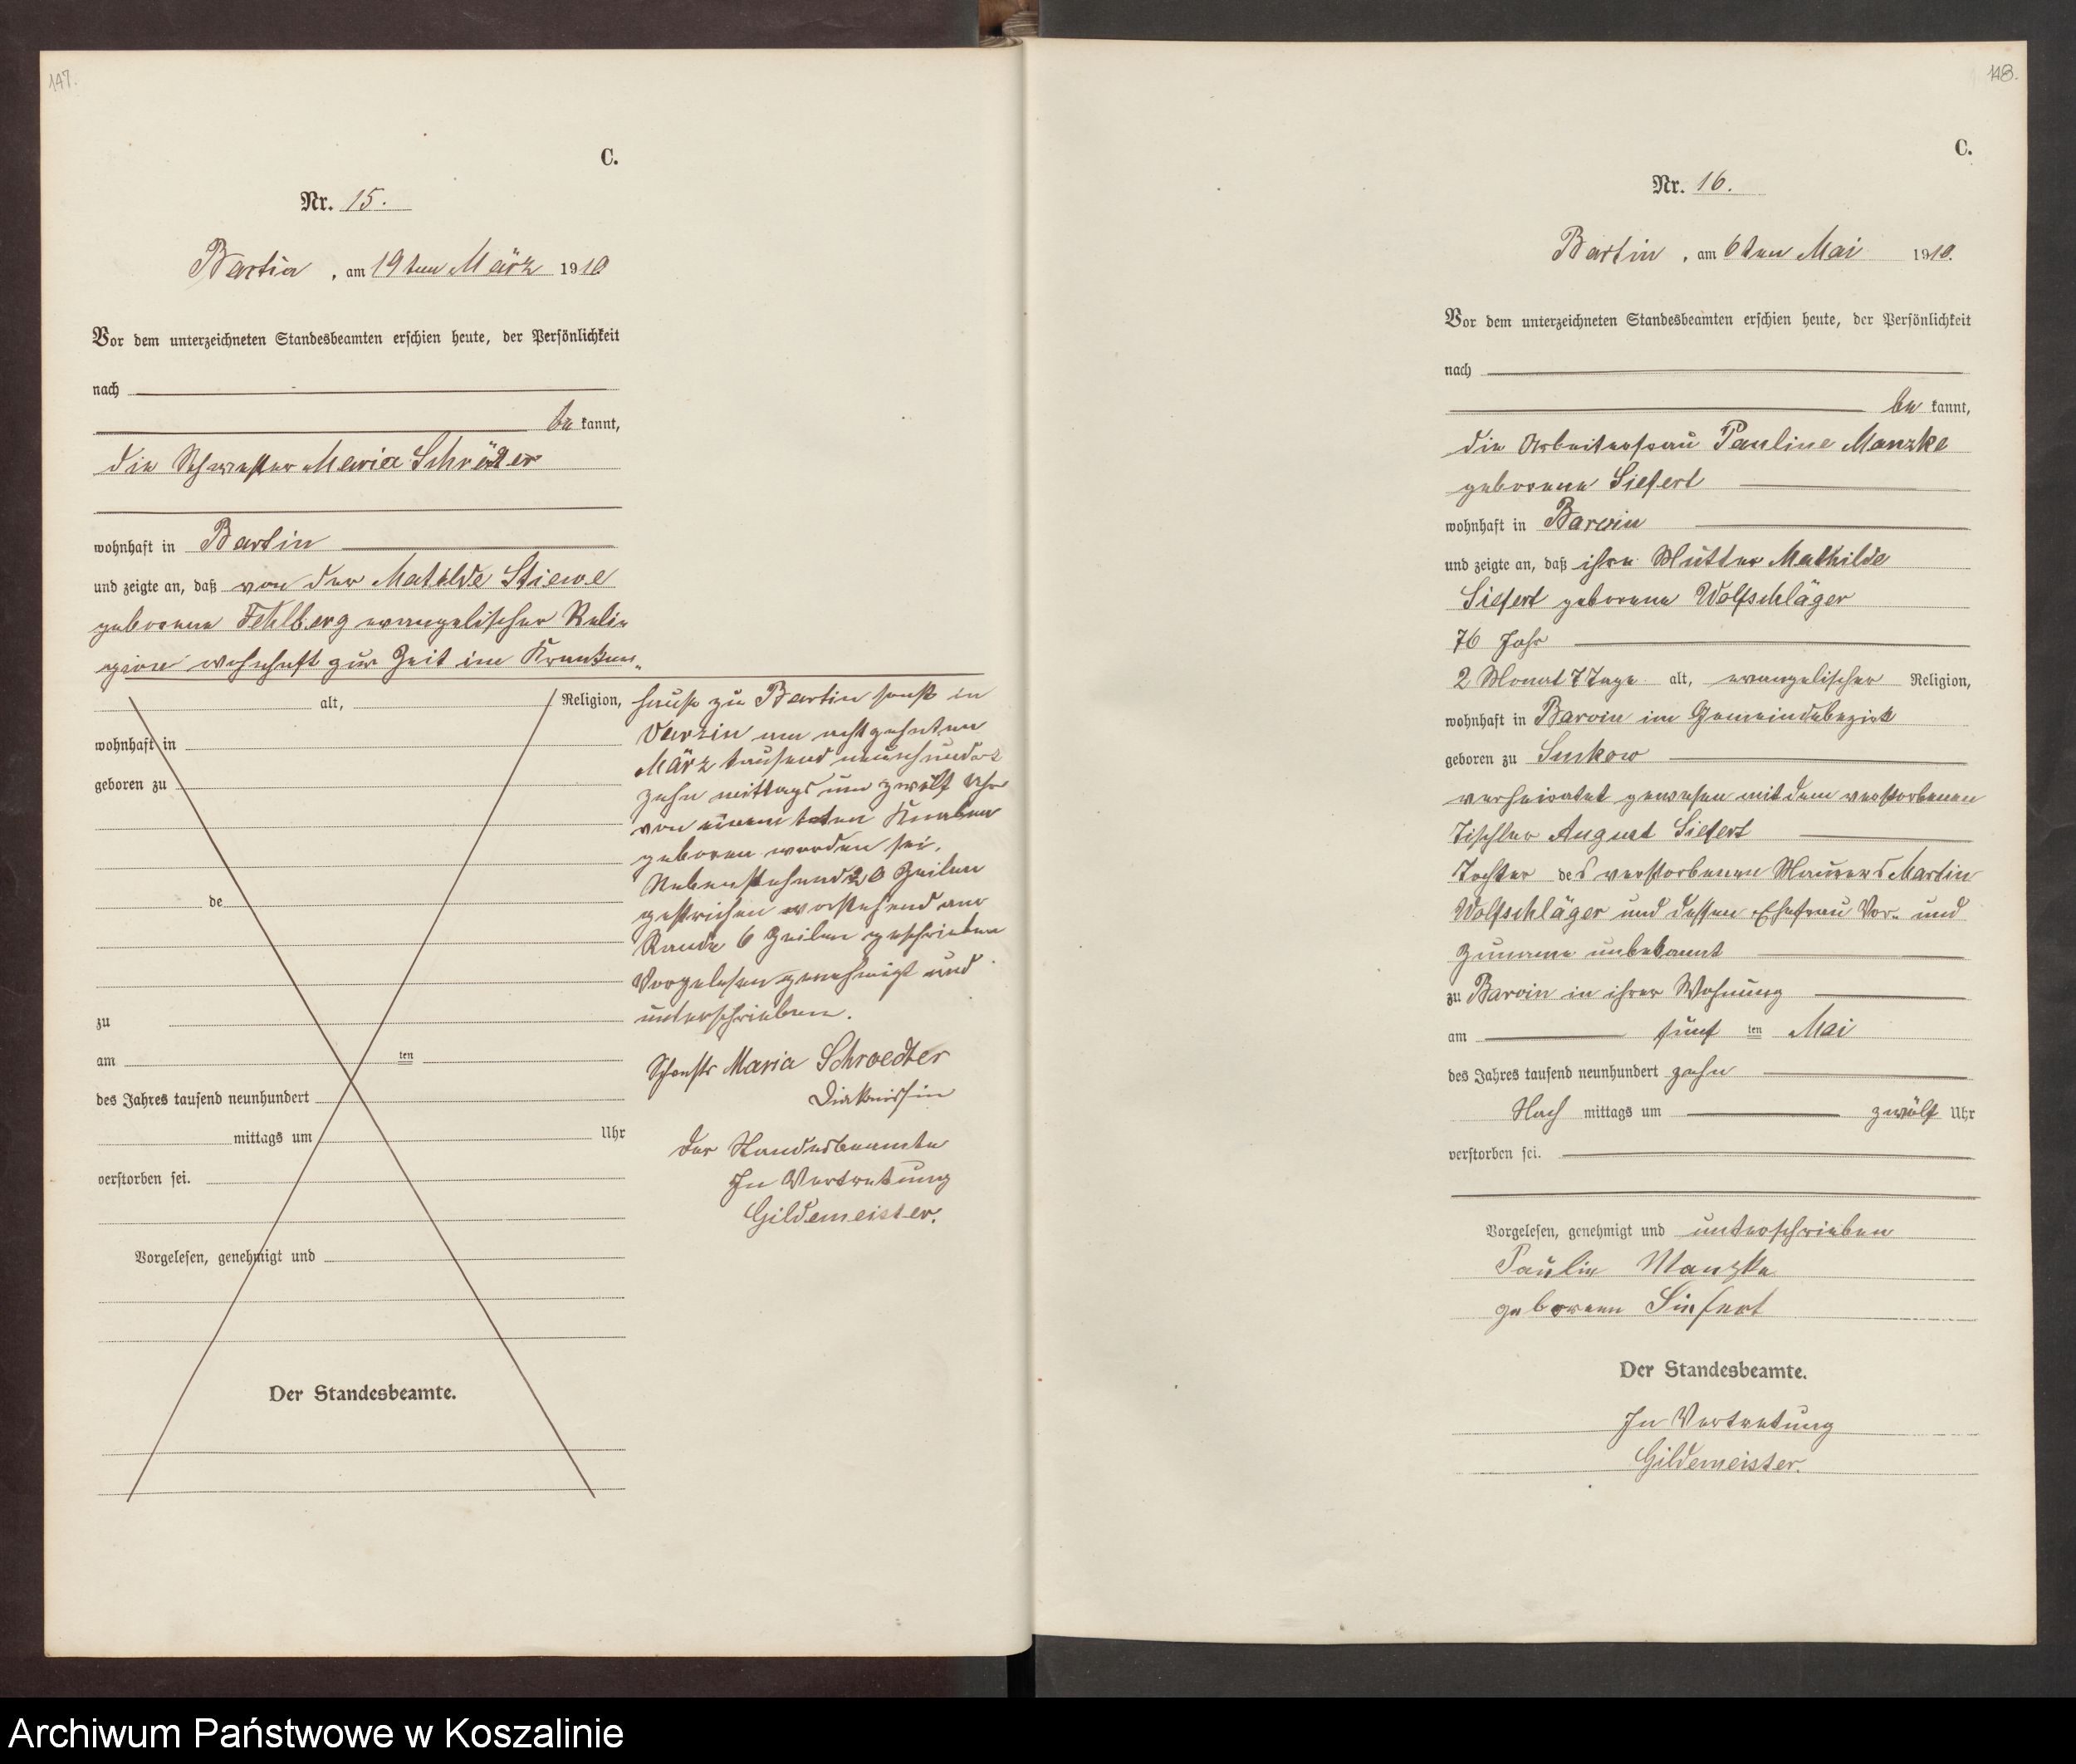 147.
C.
Nr. 15.
Bartin, am 19ten März 1910
Vor dem unterzeichneten Standesbeamten erschien heute, der Persönlichkeit
nach
be kannt,
die Schwester Maria Schröder
wohnhaft in Bartin
und zeigte an, daß von der Matilde Stiewe
geborene Fehlberg evangelischer Reli=
gion wohnhaft zur Zeit im Kranken„
alt, Religion,
wohnhaft in
geboren zu
de
zu
am ten
des Jahres tausend neunhundert
mittags um Uhr
verstorben sei.
Vorgelesen, genehmigt und
Der Standesbeamte.
hause zu Bartin sonst in
Varzin am achtzehnten
März tausend neunhundert
zehn mittags um zwölf Uhr
von einem toten Knaben
geboren worden sei.
Nebenstehend 20 Zeilen
gestrichen vorstehend am
Rande 6 Zeilen geschrieben
Vorgelesen genehmigt und
unterschrieben.
Schwestr Maria Schroedter
Diakonissin
Der Standesbeamte
In Vertretung
Gildemeister.
148.
C.
Nr. 16.
Bartin, am 6ten Mai 1910.
Vor dem unterzeichneten Standesbeamten erschien heute, der Persönlichkeit
nach
be kannt,
die Arbeiterfrau Pauline Manzke
geborene Siefert
wohnhaft in Barvin
und zeigte an, daß ihre Mutter Mathilde
Siefert geborene Wolfschläger
76 Jahr
2 Monat 7 Tage alt, evangelischer Religion,
wohnhaft in Barvin im Gemeindebezirk
geboren zu Suckow
verheiratet gewesen mit dem verstorbenen
Tischler August Siefert
Tochter des verstorbenen Maurers Martin
Wolfschläger und dessen Ehefrau Vor- und
Zuname unbekannt
zu Barvin in ihrer Wohnung
am fünf ten Mai
des Jahres tausend neunhundert zehn
Nach mittags um zwölf Uhr
verstorben sei.
Vorgelesen, genehmigt und unterschrieben
Paulin Manzke
geborenn Siefert
Der Standesbeamte.
In Vertretung
Gildemeister.
Archiwum Państwowe w Koszalinie